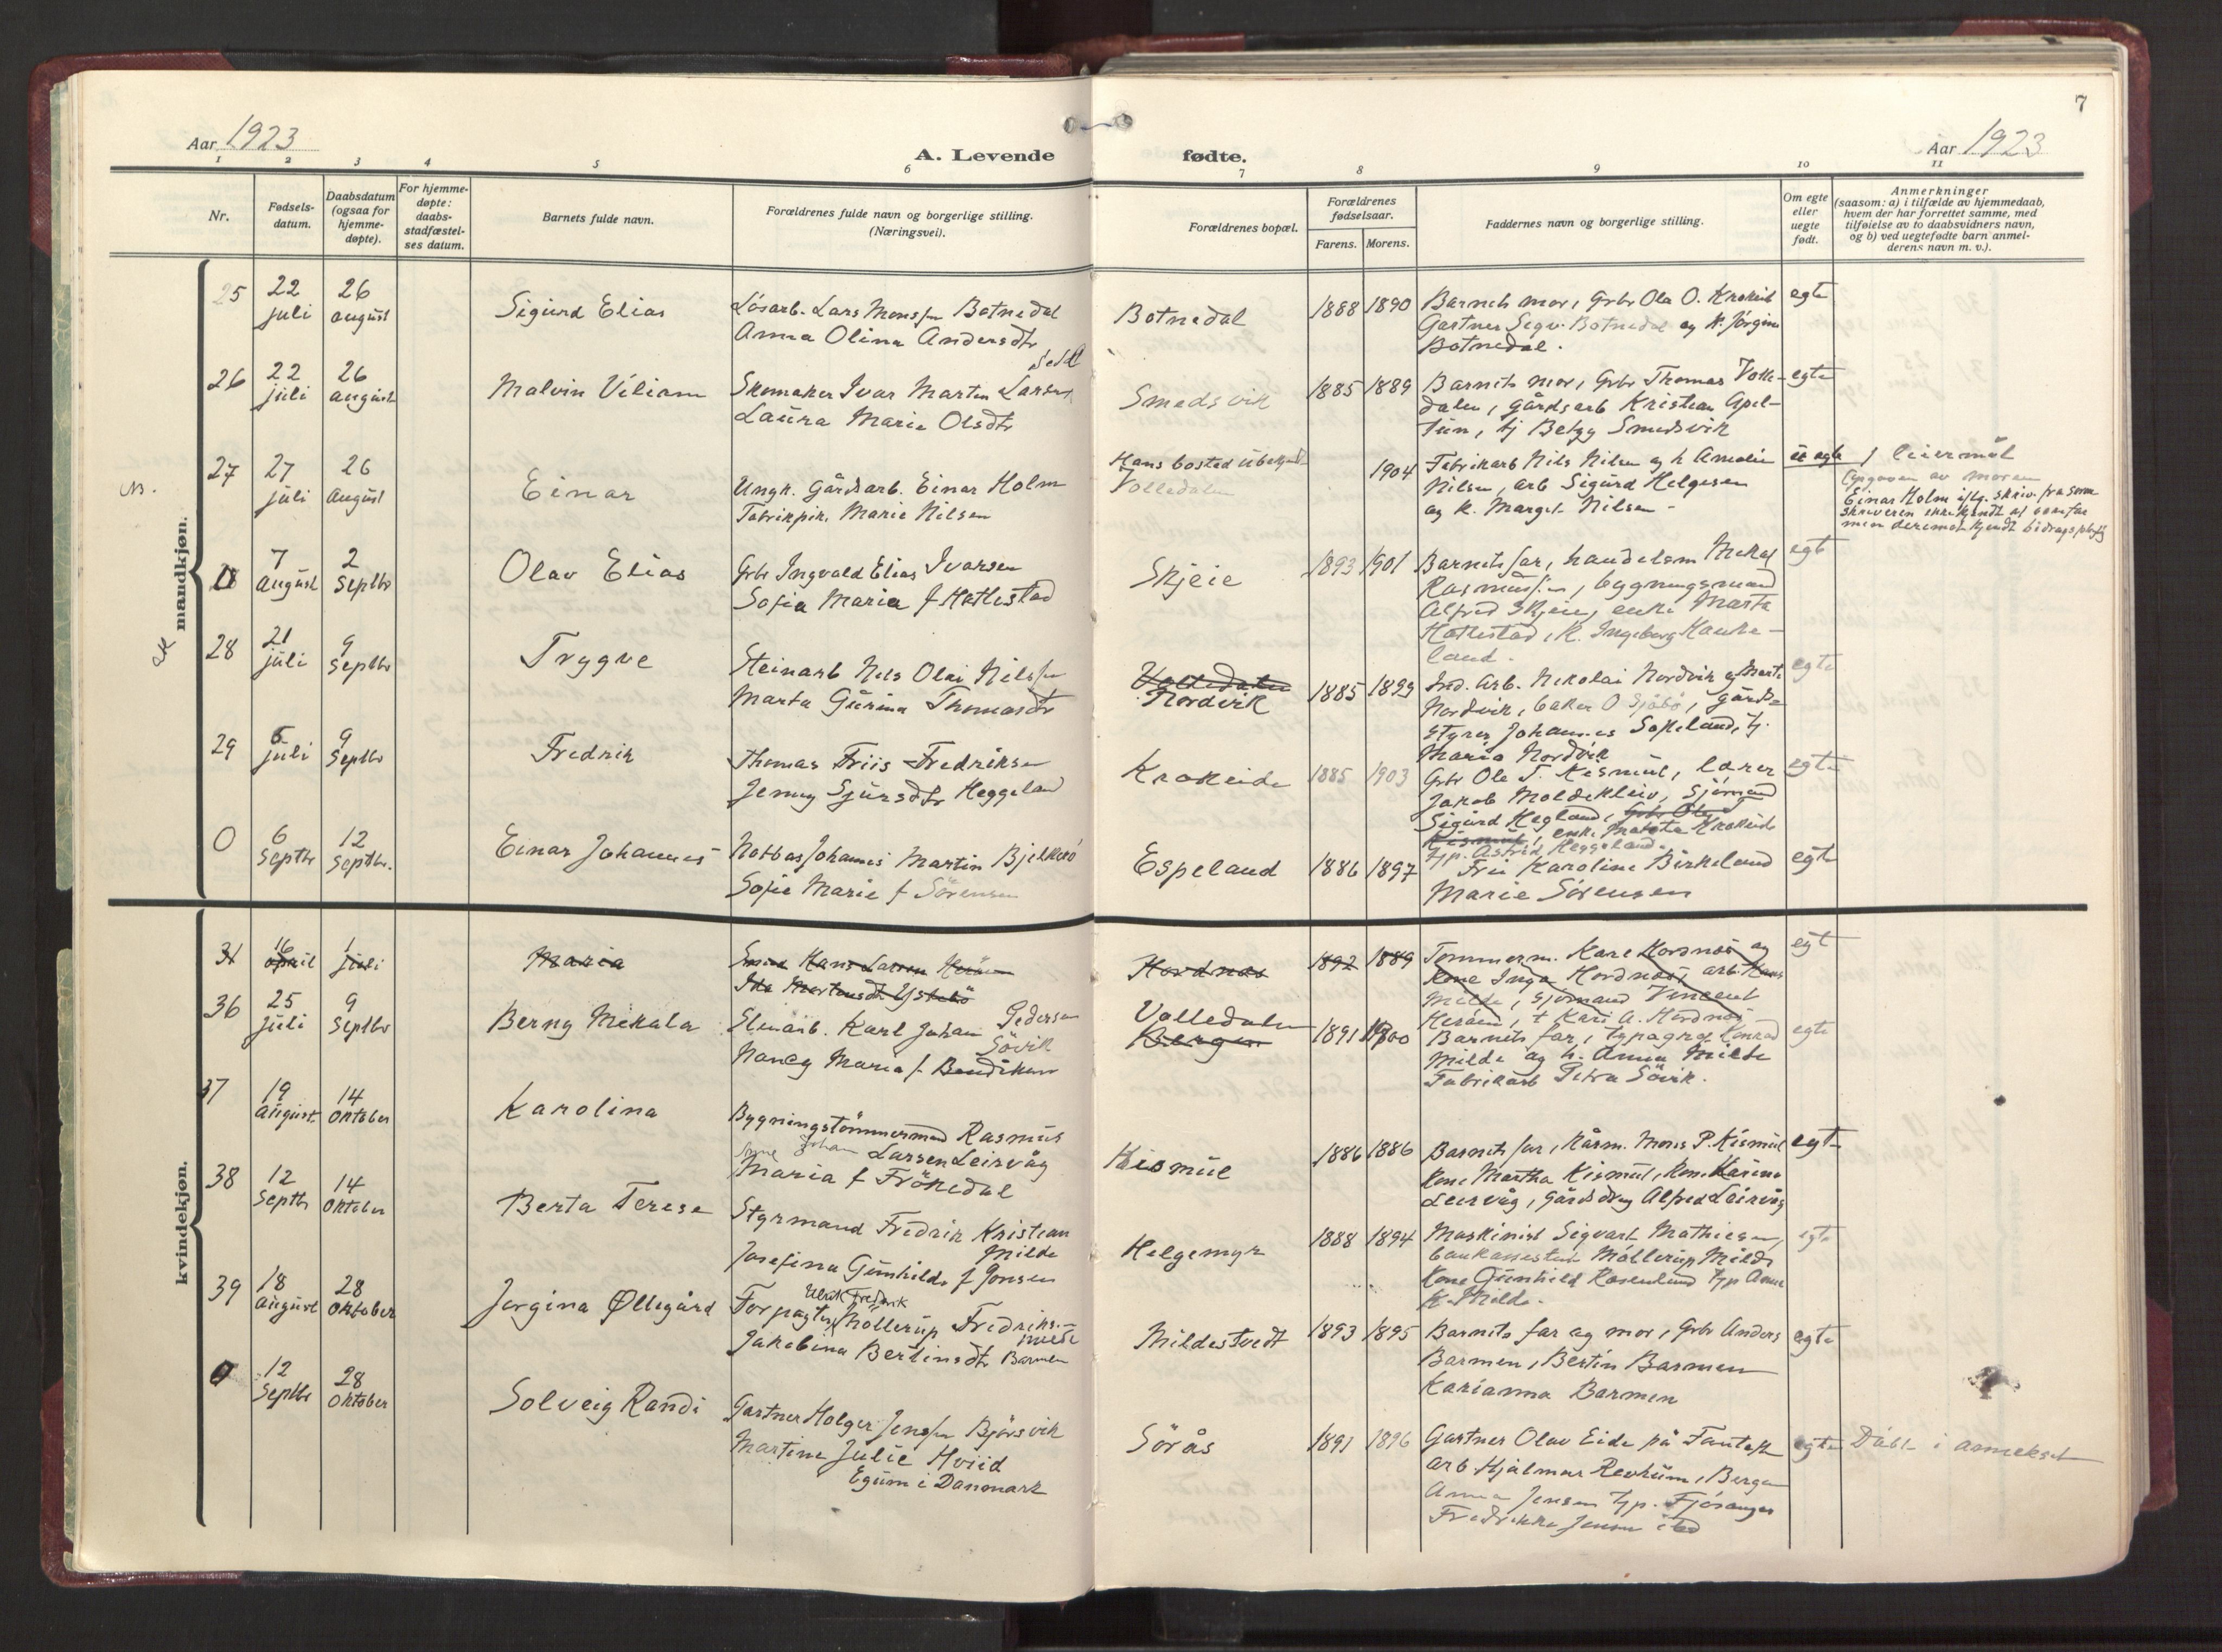 7
Aar 1923
A. Levende
fødte.
Aar 1923
1 2 3 4 5 6 7 8 9 10 11
Nr.
Fødsels-
datum.
Daabsdatum
(ogsaa for
hjemme-
døpte).
For hjemme-
døpte:
daabs-
stadfæstel-
ses datum.
Barnets fulde navn.
Forældrenes fulde navn og borgerlige stilling.
(Næringsvei).
Forældrenes bopæl.
Forældrenes
fødselsaar.
Farens. Morens.
Faddernes navn og borgerlige stilling.
Om egte
eller
uegte
født.
Anmerkninger
(saasom: a) i tilfælde av hjemmedaab,
hvem der har forrettet samme, med
tilføielse av to daabsvidners navn,
og b) ved uegtefødte barn anmel-
derens navn m. v.).
mandkjøn.
25
22
juli
26
august
Sigurd Elias
Løsarb. Lars Monssen Botnedal
Anna Olina Andersdtr
Botnedal
1888 1890
Barnets mor, Grbr Ola O. Krokeid
Gartner Sigv. Botnedal og k. Jørgine
Botnedal.
egte
26
22
juli
26
august
Malvin Viliam
Skomaker Ivar Martin Larsen
Laura Marie Olsdtr
Smedsvik
1885 1889
Barnets mor, Grbr Thomas Volle-
dalen, gårdsarb Kristian Apel-
tun, tj Betzy Smedsvik
egte
NB.
27
27
juli
26
August
Einar
Ungk. Gårdsarb. Einar Holm
Fabrikpik. Marie Nilsen
Hans bosted ubekjendt
Volledalen
1904
Fabrikarb Nils Nilsen og h Amalie
Nilsen, arb Sigurd Helgesen
og k. Margit Nilsen -
uegte
1 leiermål
Opgaven av moren
Einar Holm iflg. skriv. fra sorenskriveren ikke kjendt at være far
men derimot kjendt bidragspligtig
0
7
August
2
Septbr
Olav Elias
Grbr Ingvald Elias Ivarsen
Sofia Maria f Hatlestad
Skjeie
1893 1901
Barnets far, handelsm Mikal
Rasmussen, bygningsmand
Alfred Skjeie, enke Marta
Hatlestad, k. Ingeborg Hauke-
land.
egte
28
21
juli
9
Septbr
Trygve
Steinarb Nils Olai Nilssen
Marta Gurina Thomasdtr
Volledalen
Nordvik
1885 1899
Ind. Arb. Nikolai Nordvik og Marta
Nordvik, baker O Sjøbø, gårds-
styrer Johannes Søfteland, tj.
Maria Nordvik
egte
29
5
juli
9
Septbr
Fredrik
Thomas Friis Fredriksen
Jenny Sjursdtr Heggeland
Krokeide
1885 1903
Grbr Ole T. Kismul, lærer
Jakob Moldekleiv, Sjømand
Sigurd Hegland, Grbr Ole
Kismul, enke Marta Krokeide
tjp. Astrid Heggeland.
egte
0
6
Septbr
12
Septbr.
Einar Johannes
Notbas Johannes Martin Bjelkerø
Sofie Marie f Sörensen
Espeland
1886 1897
Fru Karoline Birkeland
Marie Sörensen
egte
kvindekjøn.
31
16
april
1
juli
Maria
Smed Hans Larsen Herøen
Ida Mortensdt. Ystebö
Hordnæs
1892 1889
Tømmerm. Kare Hordnæs og
kone Inga Hordnæs, arb. Hans
Milde, sjømand Vincent
Herøen, t Kari A. Hordnæs
egte
36
25
juli
9
Septbr
Berny Mikala
Stenarb. Karl Johan Pedersen
Sövik
Nancy Maria f. Bendiksen
Volledalen
Bergen
1891 1900
Barnets far, typograf Konrad
Milde og h. Anna Milde
Fabrikarb Petra Sövik.
egte
37
19
August
14
Oktober
Karolina
Bygningstömmermand Rasmus
Johan Larsen Leirvåg
Maria f Frökedal
Kismul
1886 1886
Barnets far, Kårm. Mons P. Kismul
Kone Martha Kismul, Kone Karina
Leirvåg, Gårdsdreng Alfred Leirvåg
egte
38
12
Septbr
14
Oktober
Berta Terese
Styrmand Fredrik Kristian
Milde
Josefina Gunhilda f Jonsen
Helgemyr
1888 1894
Maskinist Sigvart Mathiesen,
bankassistent Möllerup Milde
Kone Gunhild Rosenlund typ Anna
K. Milde.
egte
39
18
August
28
Oktober
Jørgina Øllegård
Ulrik Fredrik
Forpagter Möllerup Fredriks.-
Milde
Jakobina Bertinsdtr Barmen
Mildestvedt
1893 1895
Barnets far og mor, Grbr Anders
Barmen, Bertin Barmen
Karianna Barmen
egte
0
12
Septbr
28
Oktober
Solveig Randi
Gartner Holger Jenssen Bjørsvik
Martine Julie Hviid
Egum i Danmark
Sörås
1891 1896
Gartner Olav Eide på Fantoft
arb. Hjalmar Revheim, Bergen
Anna Jensen typ. Fjösanger
Fredrikke Jensen ibd
egte
Døbt i annekset